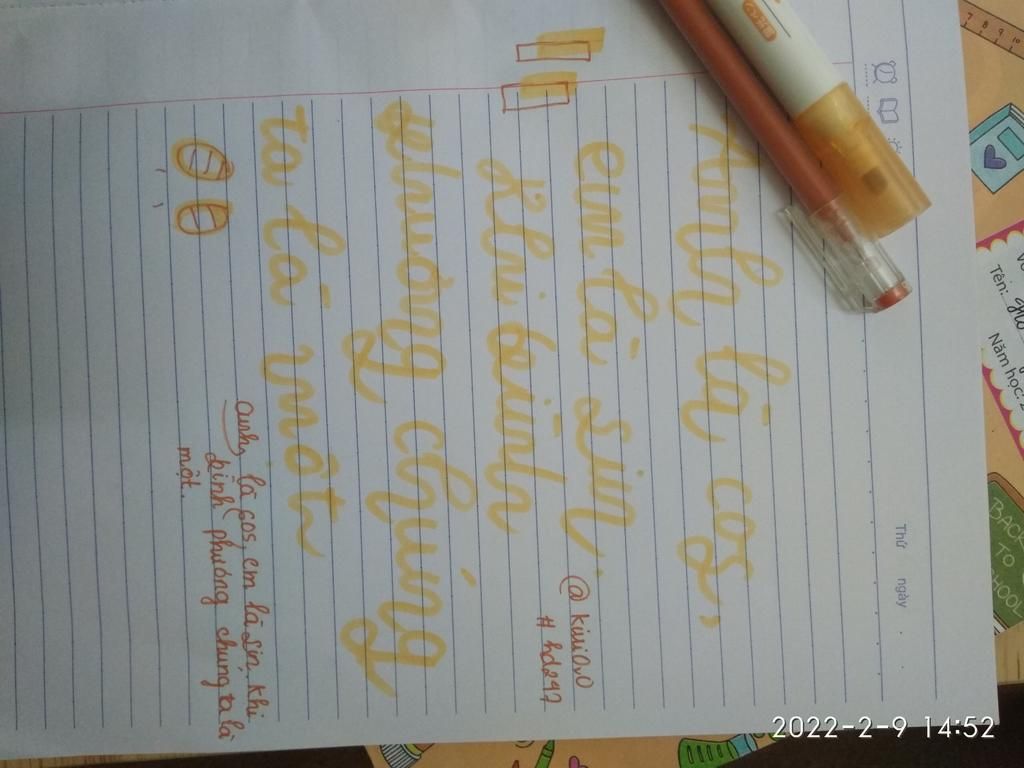 Thứ ngày
Anh là cos,
em là sin.
@kiwi0v0
# hd247
Khi bình
phương chúng
ta là một
anh là cos, em là sin. khi
bình phương chúng ta là
một.
Tên:
Năm học:
BACK
TO
SCHOOL
7 8 9 10
2022-2-9 14:52